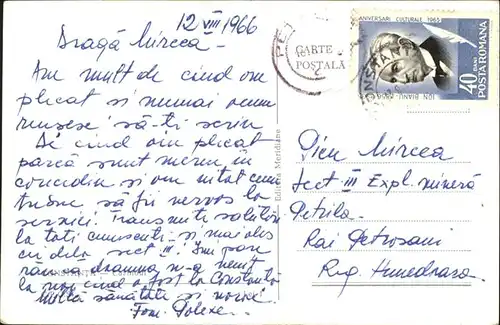 12 VIII 1966
Dragă Mircea -
Am mult de cînd am
plicat și numai acum
reușesc să-ți scriu
De cînd am plicat
parcă sunt mereu în
concediu și am uitat cum
trăne să fii nervos la
servici. Transmite salutări
la toți cunoscuți - și mai ales
cu dela sect III. Îmi pare
rău că dumna n-a venit
la noi cînd a fost la Constanța
Multă sănătate și noroc!
Fam.
CARTE
POSTALĂ
Editura Meridiane
CONSTANȚA
ANIVERSARI CULTURALE 1965
ION BIANU
40 BANI
POSTA ROMANA
CONSTANTA
Mircea
Sect III Expl. minieră
Petrila -
Rai Petroșani
Reg. Hunedoara